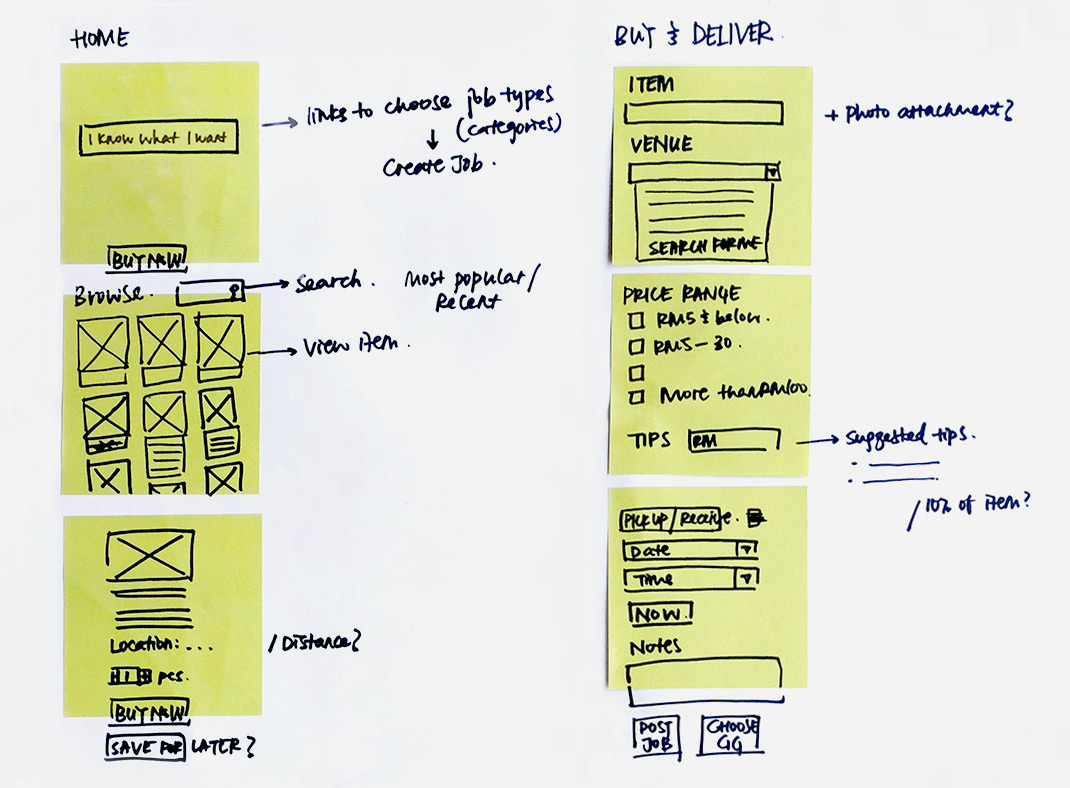 HOME
I know what I want
links to choose job types
(categories)
Create Job.
BUY NOW
Browse.
Search.
Most popular/
Recent
View item.
Location: ...
/Distance?
1 pcs.
BUY NOW
SAVE FOR LATER?
BUY & DELIVER
ITEM
+ Photo attachment?
VENUE
SEARCH FOR ME
PRICE RANGE
RM5 & below.
RM5 - 30.
More than RM100.
TIPS RM
Suggested tips.
/10% of item?
PICKUP/Receive.
Date
Time
NOW.
Notes
POST
JOB
CHOOSE
GG